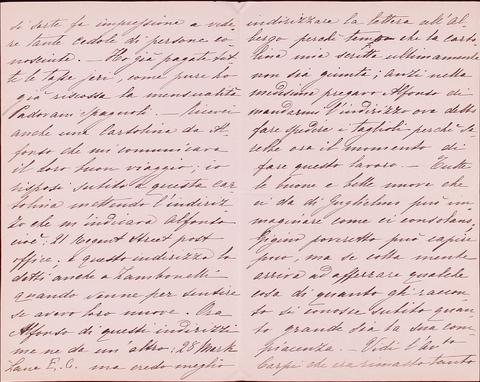 di sorte fe impressione a vede
re tante cedole di persone co=
nosciute. — Ho già pagate tut
te le tasse jeri, come pure ho
già riscossa la mensualità
Padovani Spagnoli. — Ricevei
anche una Cartolina da Al
fonso che mi comunicava
il loro buon viaggio; io
risposi subito a questa car
tolina mettendo l'indiriz
zo che m'indicava Alfonso
cioè: 21 Regent Street post
office: e questo indirizzo lo
detti anche a Zambonelli
quando venne per sentire
se avevo loro nuove. Ora
Alfonso di questi indirizzi
me ne dà un'altro: 28 Mark
Lane E. C. ma credo meglio
indirizzare la lettera all'Al
bergo perchè temo che la carto
lina mia scritta ultimamente
non sia giunta; anzi nella
medesima pregavo Alfonso di
mandarmi l'indirizzo ove debbo
fare spedire i Tagliuoli perchè sa
rebbe ora il momento di
fare questo lavoro. — Tutte
le buone e belle nuove che
ci dà di Guglielmo può im
maginare come ci consolano,
Gigino poveretto può capire
poco, ma se colla mente
arriva ad afferrare qualche
cosa di quanto gli raccon
to si conosce subito quan
to grande sia la sua com
piacenza. — Vidi l'Avto
Carpi che era rimasto tanto